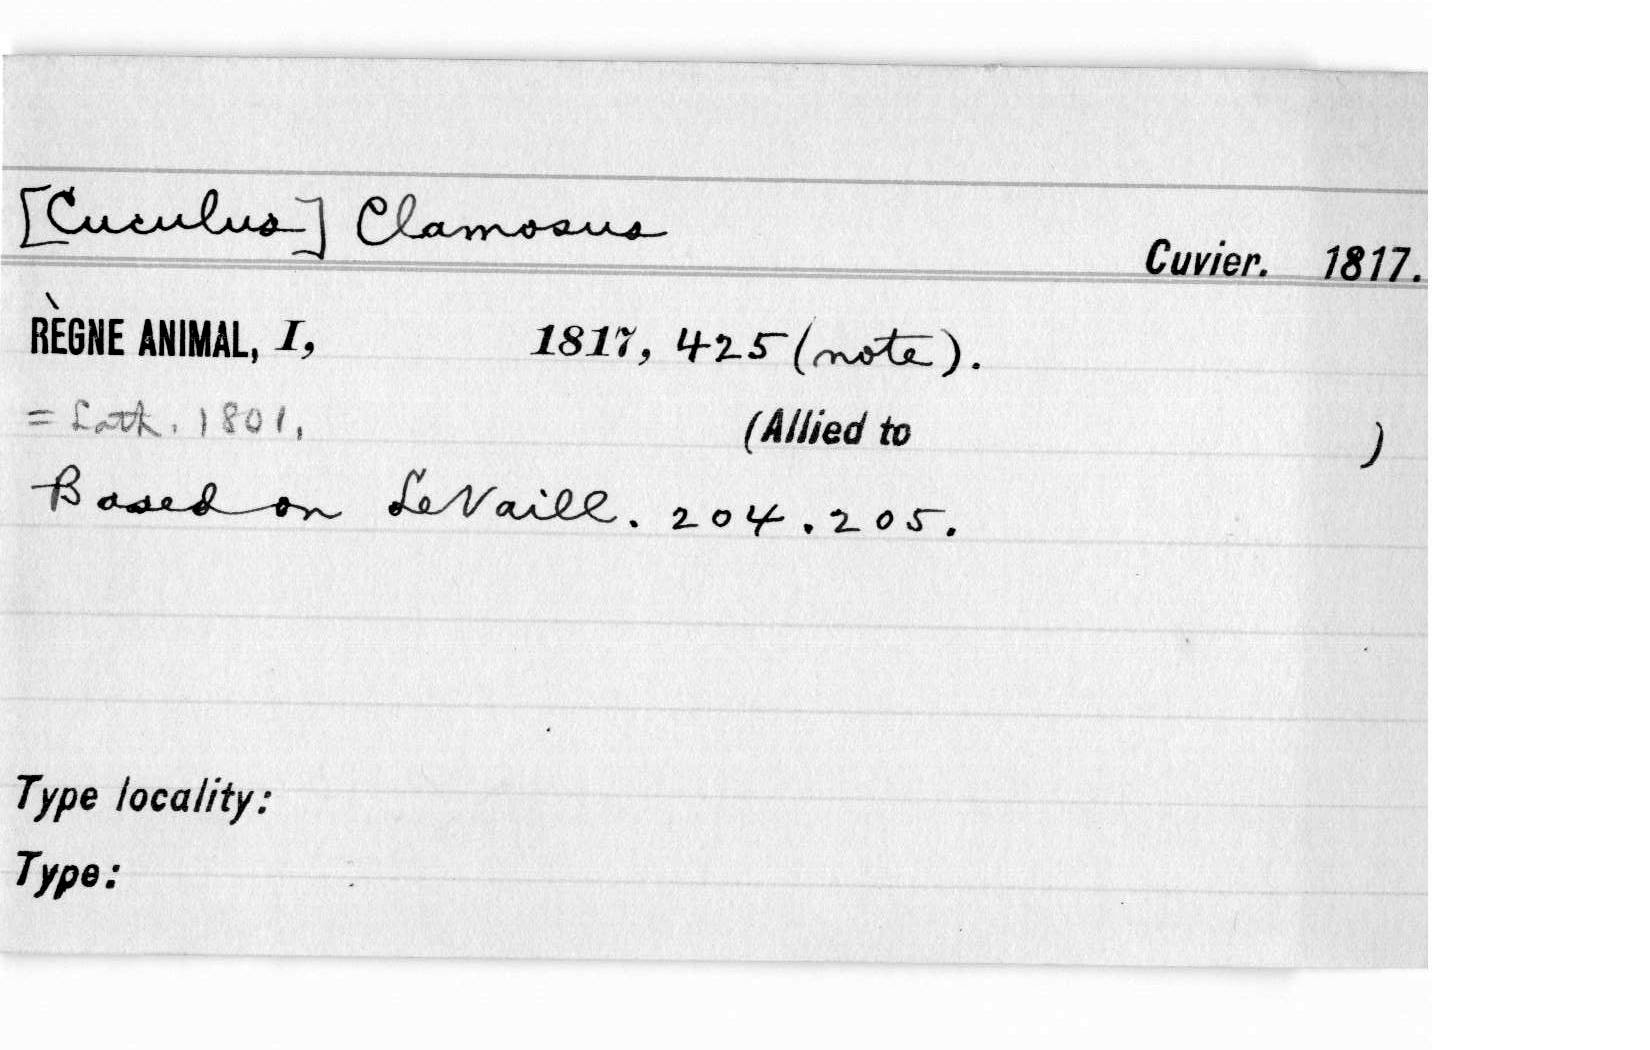 [Cuculus] Clamosus
Cuvier. 1817.
RÈGNE ANIMAL, I, 1817, 425 (note).
= Lath. 1801. (Allied to )
Based on LeVaill. 204.205.
Type locality:
Type: